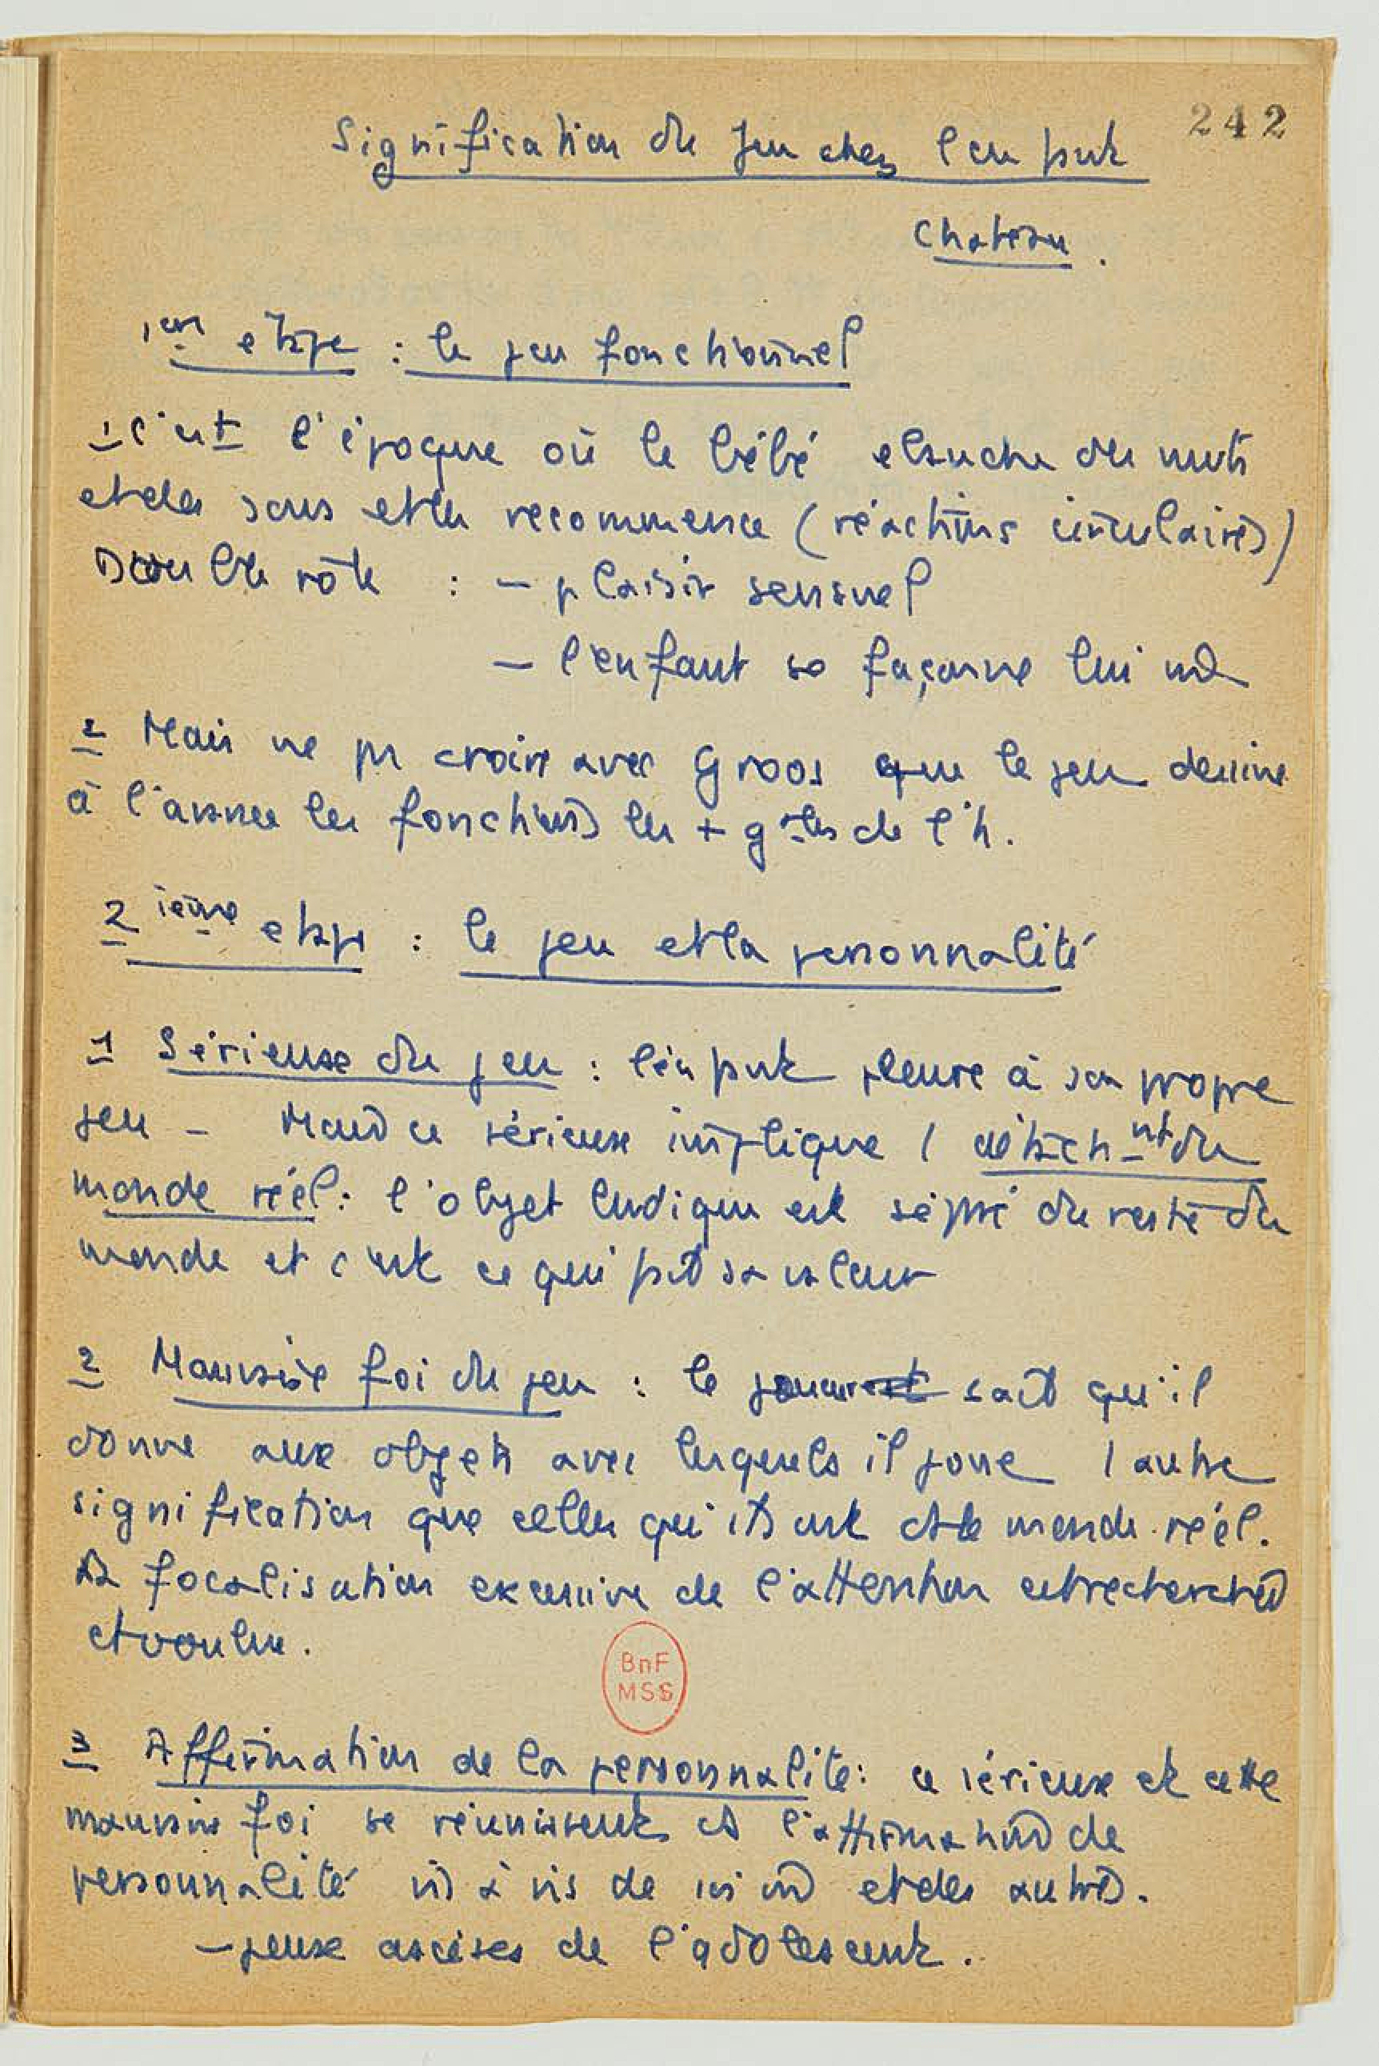 242
Signification du jeu chez l'enfant
Chateau.
1ère etape : le jeu fonctionnel
1 C'est l'époque où le bébé ebauche des mots
et des sons et les recommence (réactions circulaires)
Double rôle : - plaisir sensuel
- l'enfant se façonne lui m
2 Mais ne pas croire avec Groos que le jeu dessine
à l'avance les fonctions les + gdes de l'h.
2 ième etape : le jeu et la personnalité
1 Sérieux du jeu : l'enfant pleure à son propre
jeu - Mais ce sérieux implique 1 détachnt du
monde réel : l'objet ludique est séparé du reste du
monde et c'est ce qui fait sa valeur
2 Mauvaise foi du jeu : le sait qu'il
donne aux objets avec lesquels il joue 1 autre
signification que celle qu'ils ont ds le monde réel.
La focalisation excessive de l'attention est recherchée
et voulue.
BnF
MSS
3 Affirmation de la personnalité : ce sérieux et cette
mauvaise foi se réunissent ds l'affirmation de
personnalité vis à vis de soi m et des autres.
- jeux ascèses de l'adolescent.